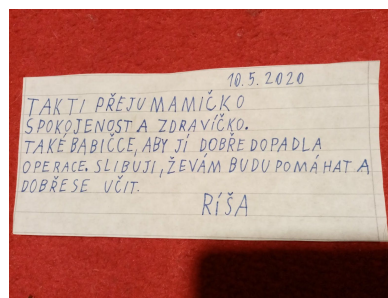 10.5.2020
TAK TI PŘEJU MAMIČKO
SPOKOJENOST A ZDRAVÍČKO.
TAKÉ BABIČCE, ABY JÍ DOBŘE DOPADLA
OPERACE. SLIBUJI, ŽE VÁM BUDU POMÁHAT A
DOBŘE SE UČIT.
RÍŠA